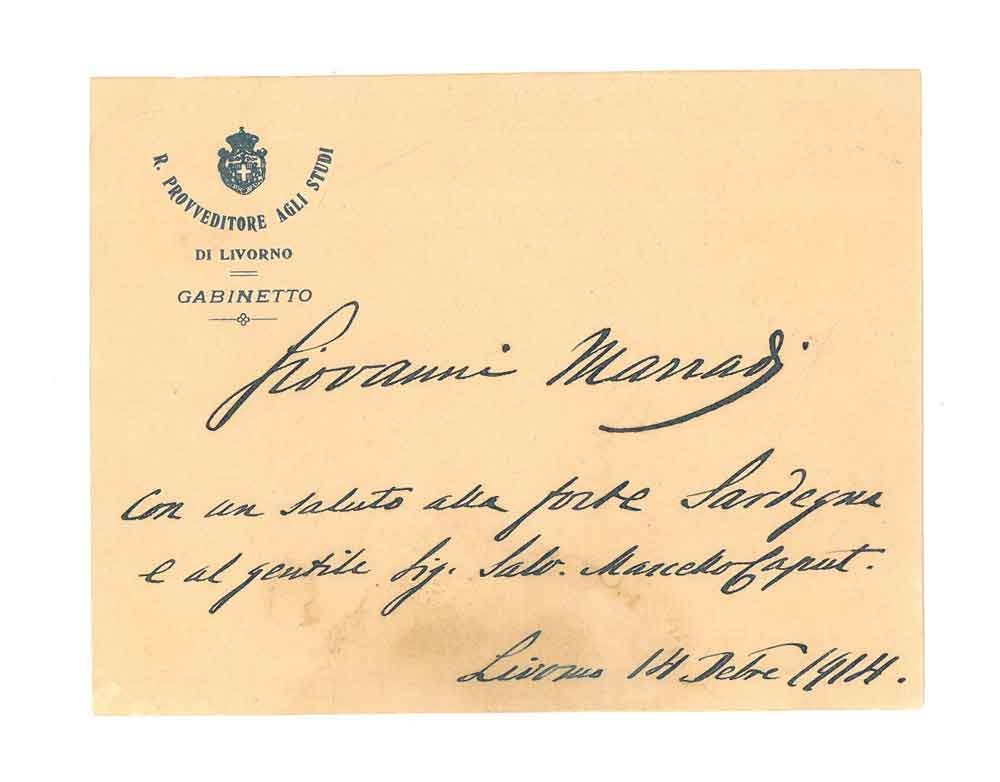 R. PROVVEDITORE AGLI STUDI
DI LIVORNO
GABINETTO
Giovanni Marradi
Con un saluto alla forte Sardegna
e al gentile Sig. Salv. Marcello Caput.
Livorno 14 Dcbre 1914.